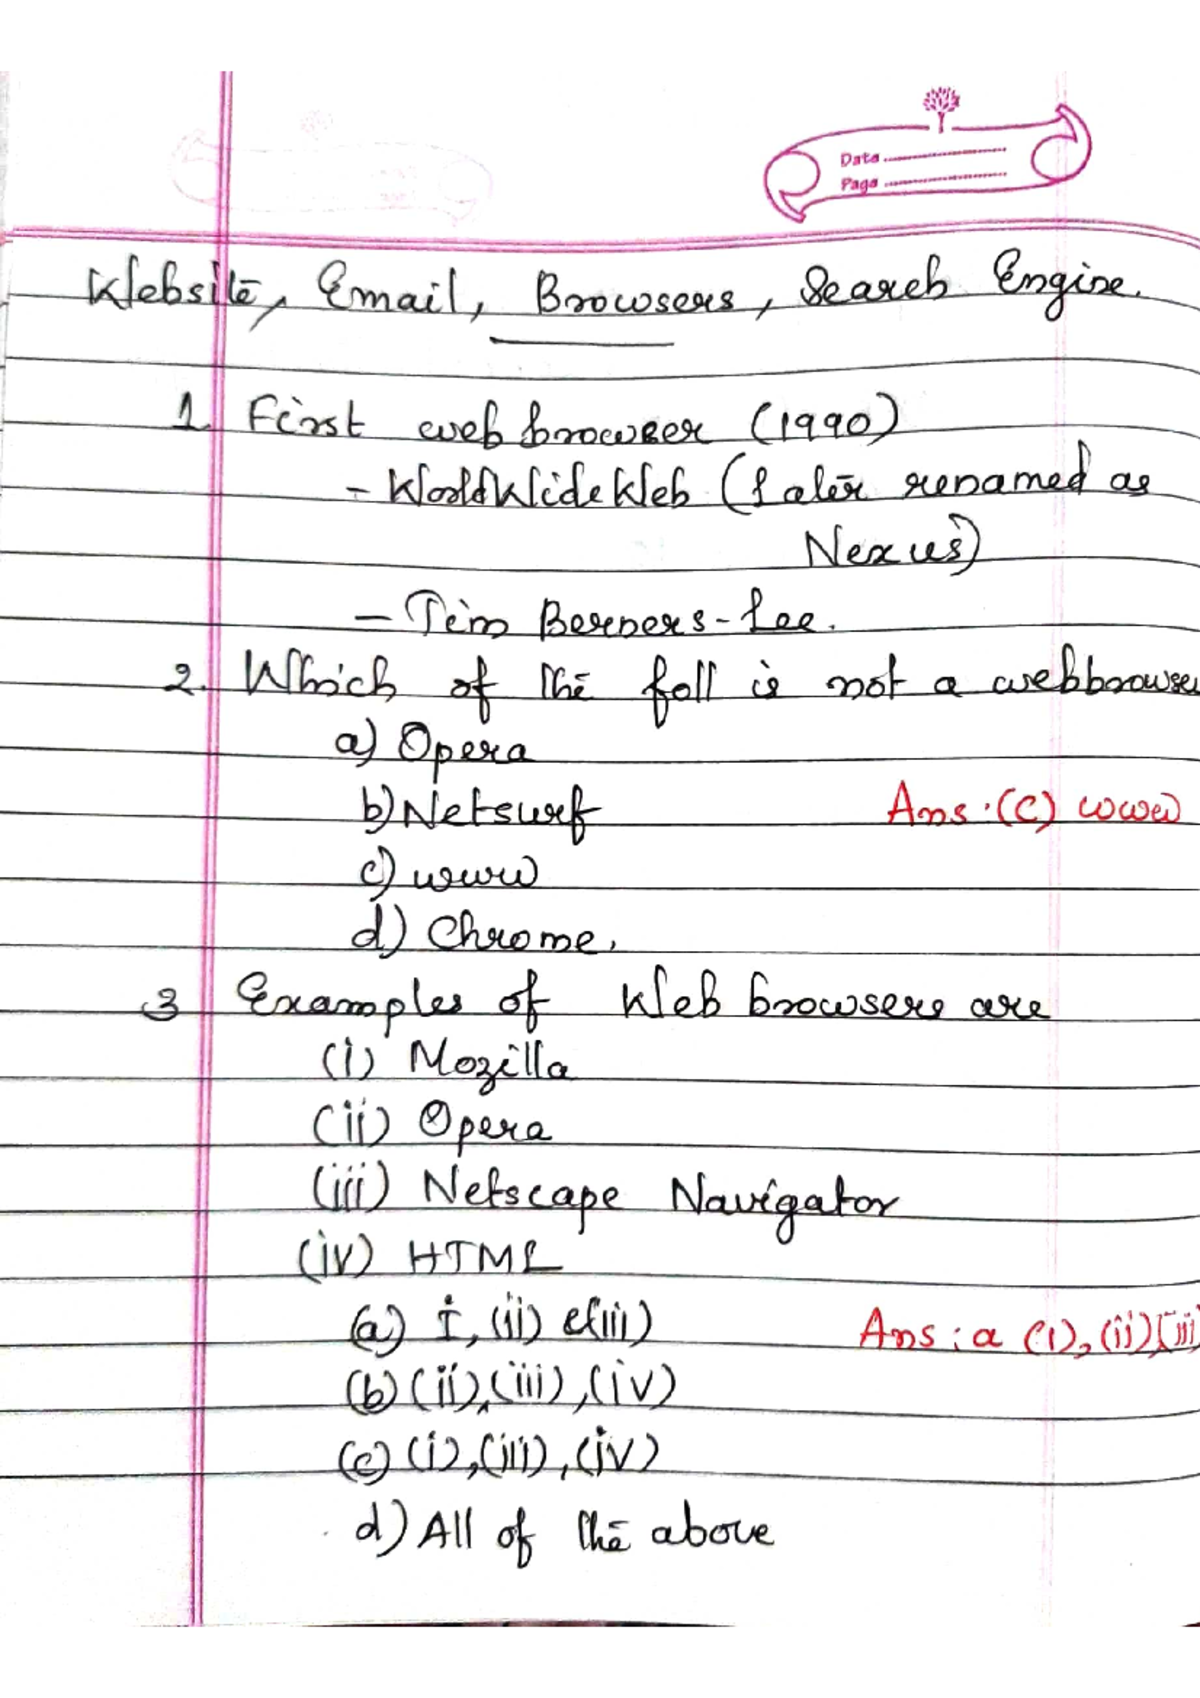 Date
Page
Website, Email, Browsers, Search Engine.
1. First web browser (1990)
- WorldWideWeb (Later renamed as
Nexus)
- Tim Berners-Lee.
2. Which of the foll is not a webbrowser
a) Opera
b) Netsurf
Ans. (C) www
c) www
d) Chrome.
3 Examples of Web browsers are
(i) Mozilla
(ii) Opera
(iii) Netscape Navigator
(iv) HTML
(a) i, (ii) &(iii)
Ans : a (i), (ii) (iii)
(b) (ii), (iii), (iv)
(c) (i), (iii), (iv)
d) All of the above